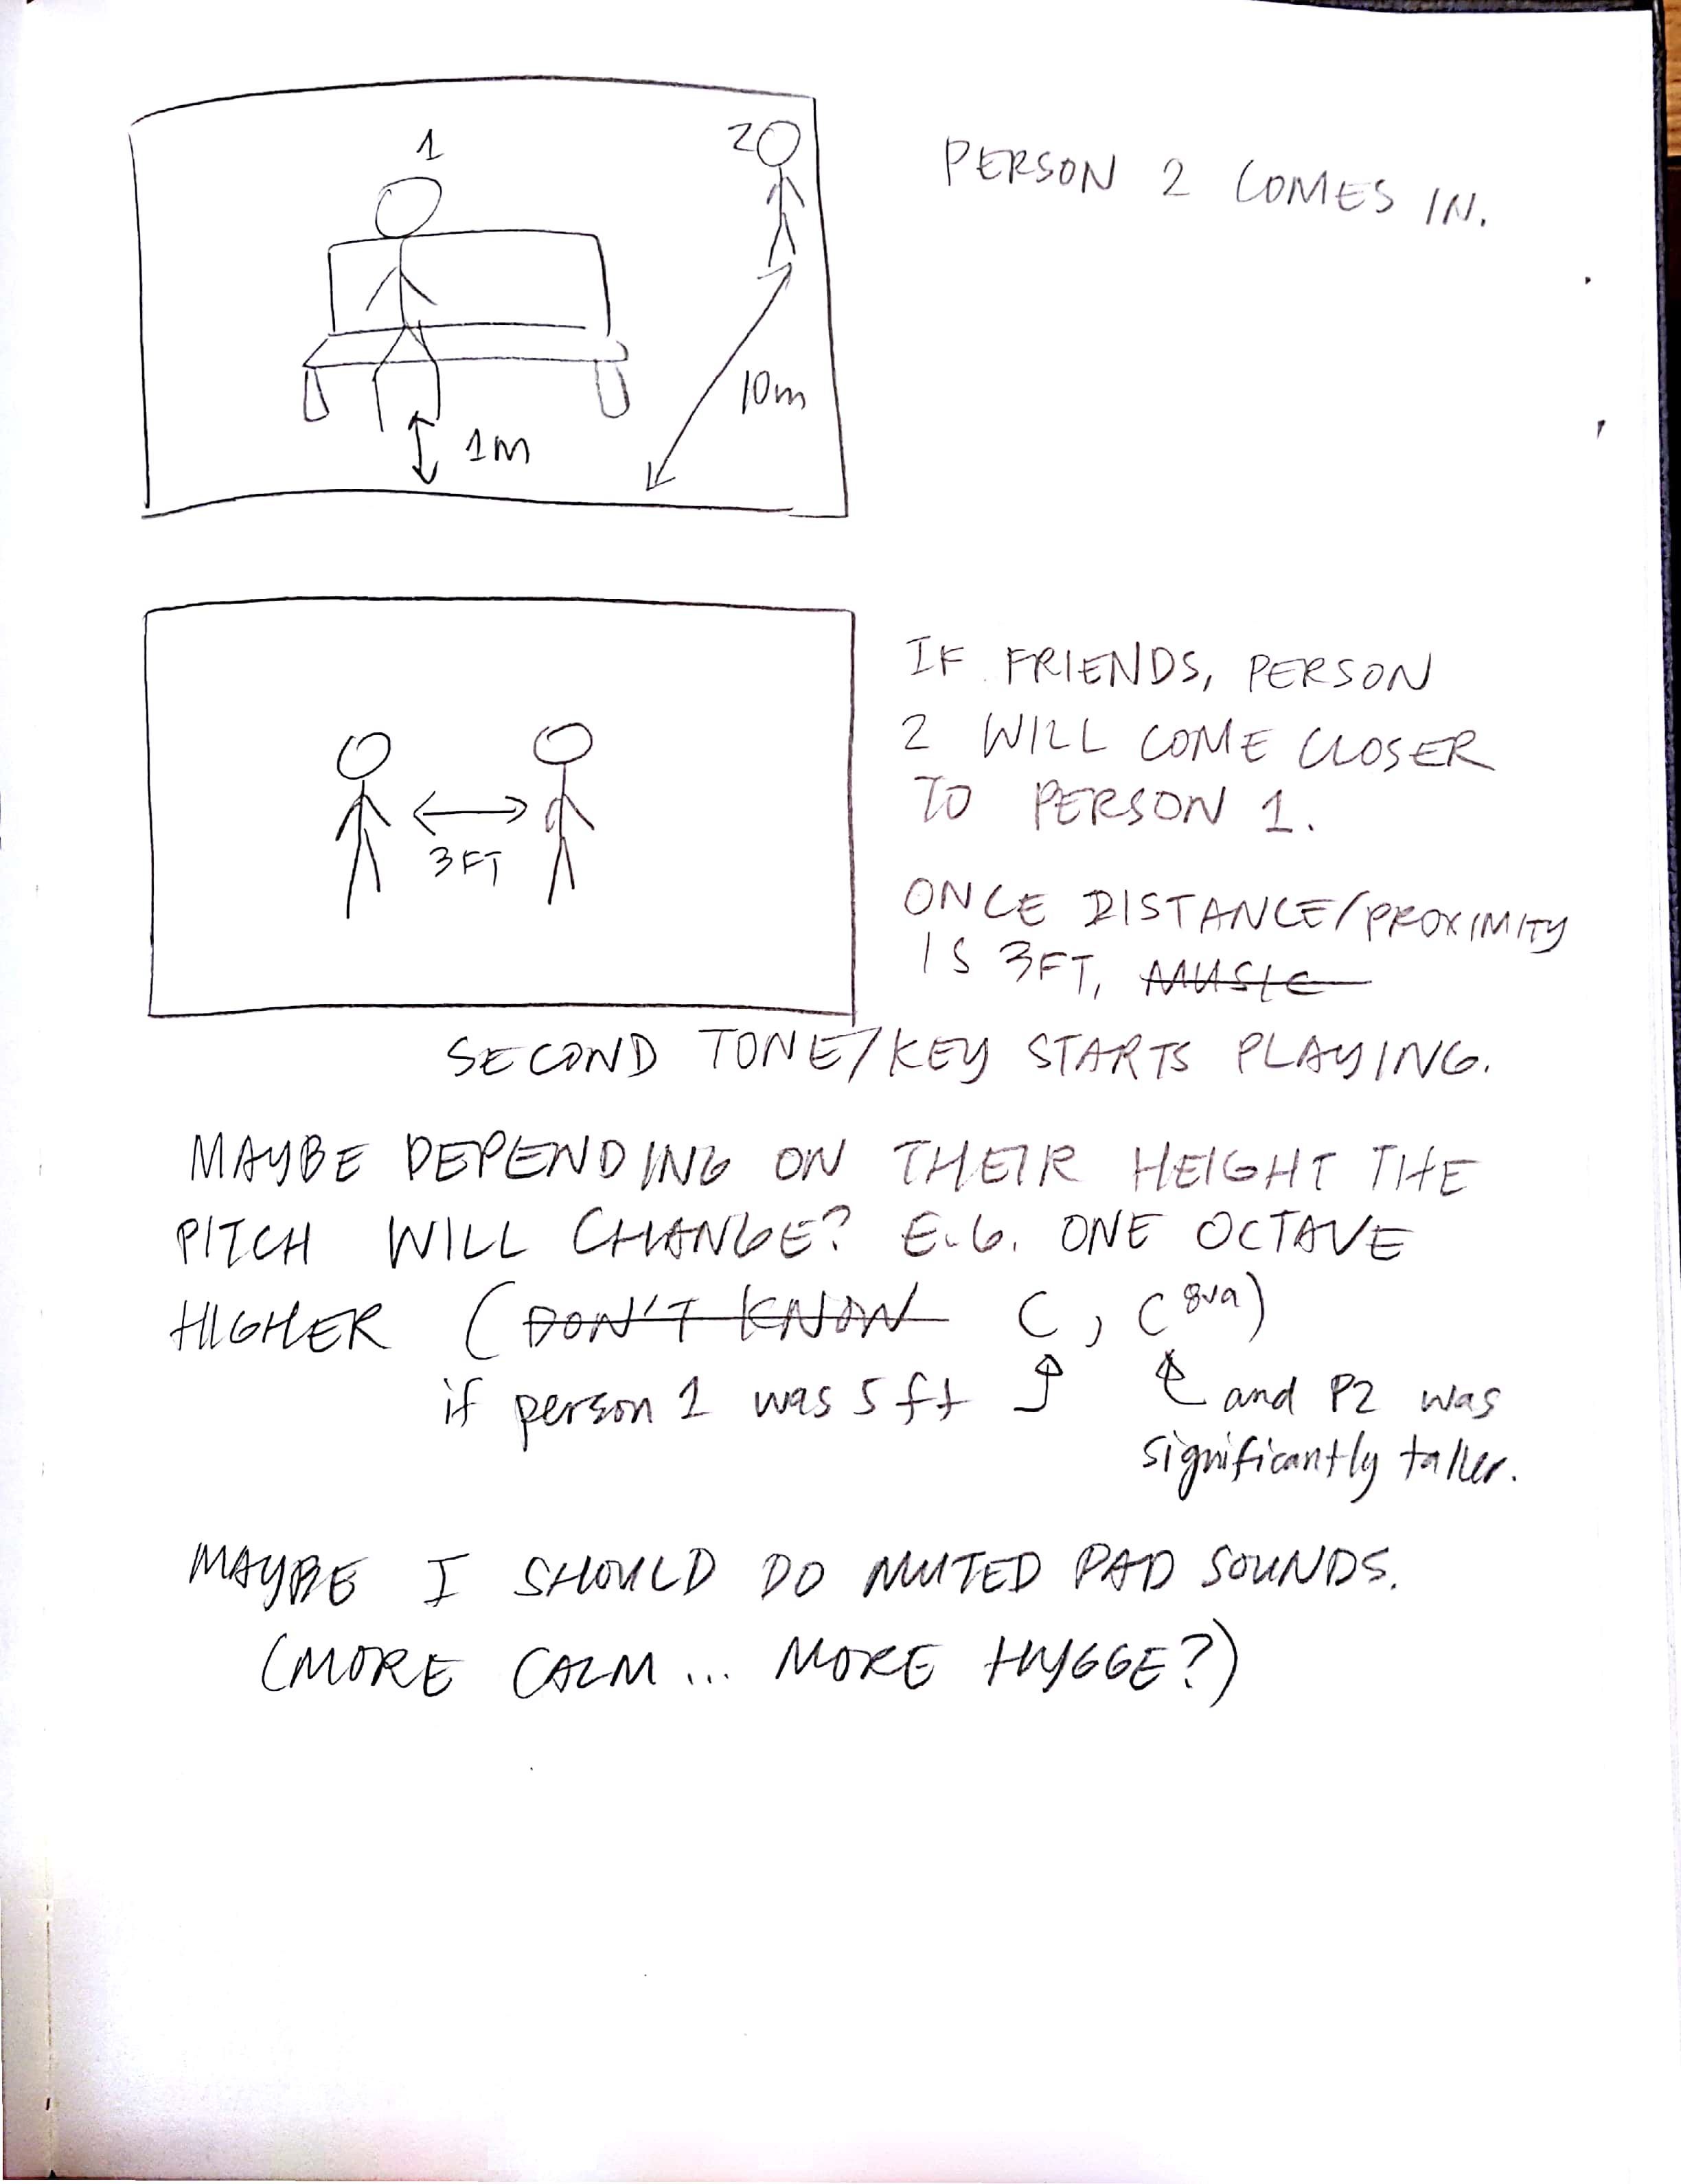 1
2
PERSON 2 COMES IN.
10m
1m
IF FRIENDS, PERSON
2 WILL COME CLOSER
TO PERSON 1.
3FT
ONCE DISTANCE/PROXIMITY
IS 3FT, MUSIC
SECOND TONE/KEY STARTS PLAYING.
MAYBE DEPENDING ON THEIR HEIGHT THE
PITCH WILL CHANGE? E.G. ONE OCTAVE
HIGHER (DON'T KNOW C, C 8va)
if person 1 was 5 ft and P2 was
significantly taller.
MAYBE I SHOULD DO MUTED PAD SOUNDS.
(MORE CALM... MORE HYGGE?)